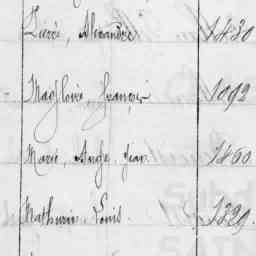 Pierre, Alexandre 1430
Magloire, François 1092
Marie, Ange Jean 1460
Mathurin, Louis. 1229.